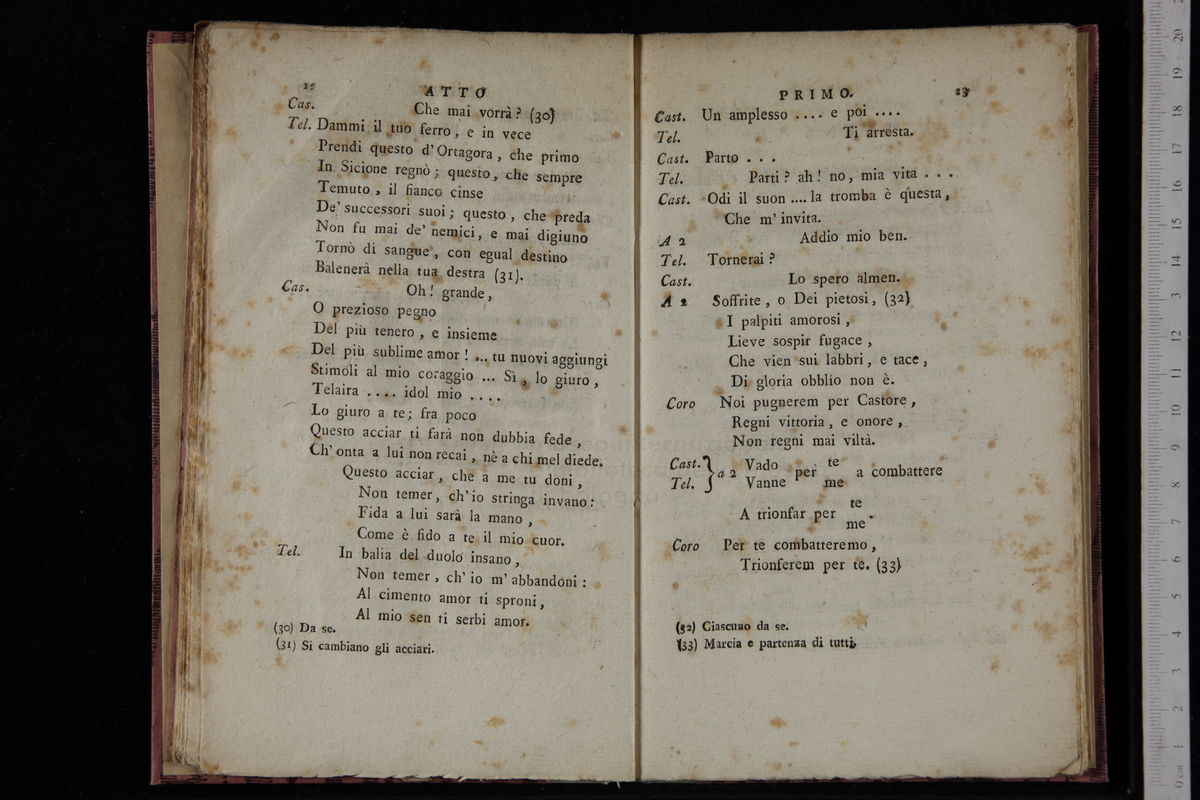 12 ATTO
Cas. Che mai vorrà? (30)
Tel. Dammi il tuo ferro, e in vece
Prendi questo d'Ortagora, che primo
In Sicione regnò; questo, che sempre
Temuto, il fianco cinse
De' successori suoi; questo, che preda
Non fu mai de' nemici, e mai digiuno
Tornò di sangue, con egual destino
Balenerà nella tua destra (31).
Cas. Oh! grande,
O prezioso pegno
Del più tenero, e insieme
Del più sublime amor! ... tu nuovi aggiungi
Stimoli al mio coraggio ... Sì, lo giuro,
Telaira .... idol mio ....
Lo giuro a te; fra poco
Questo acciar ti farà non dubbia fede,
Ch'onta a lui non recai, nè a chi mel diede.
Questo acciar, che a me tu doni,
Non temer, ch'io stringa invano:
Fida a lui sarà la mano,
Come è fido a te il mio cuor.
Tel. In balia del duolo insano,
Non temer, ch'io m'abbandoni:
Al cimento amor ti sproni,
Al mio sen ti serbi amor.
(30) Da se.
(31) Si cambiano gli acciari.
PRIMO. 13
Cast. Un amplesso .... e poi ....
Tel. Ti arresta.
Cast. Parto ...
Tel. Parti? ah! no, mia vita ...
Cast. Odi il suon .... la tromba è questa,
Che m'invita.
A 2 Addio mio ben.
Tel. Tornerai?
Cast. Lo spero almen.
A 2 Soffrite, o Dei pietosi, (32)
I palpiti amorosi,
Lieve sospir fugace,
Che vien sui labbri, e tace,
Di gloria obblìo non è.
Coro Noi pugnerem per Castore,
Regni vittoria, e onore,
Non regni mai viltà.
Cast. } a 2 Vado per te a combattere
Tel. Vanne me
A trionfar per te
me.
Coro Per te combatteremo,
Trionferem per te. (33)
(32) Ciascuno da se.
(33) Marcia e partenza di tutti.